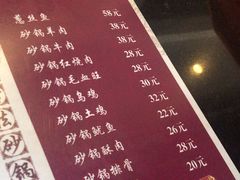 葱歧鱼 58元
砂锅羊肉 38元
砂锅牛肉 38元
砂锅红烧肉 28元
砂锅毛血旺 30元
砂锅乌鸡 32元
砂锅土鸡 22元
砂锅鱿鱼 26元
砂锅酥肉 28元
砂锅排骨 20元
砂
锅